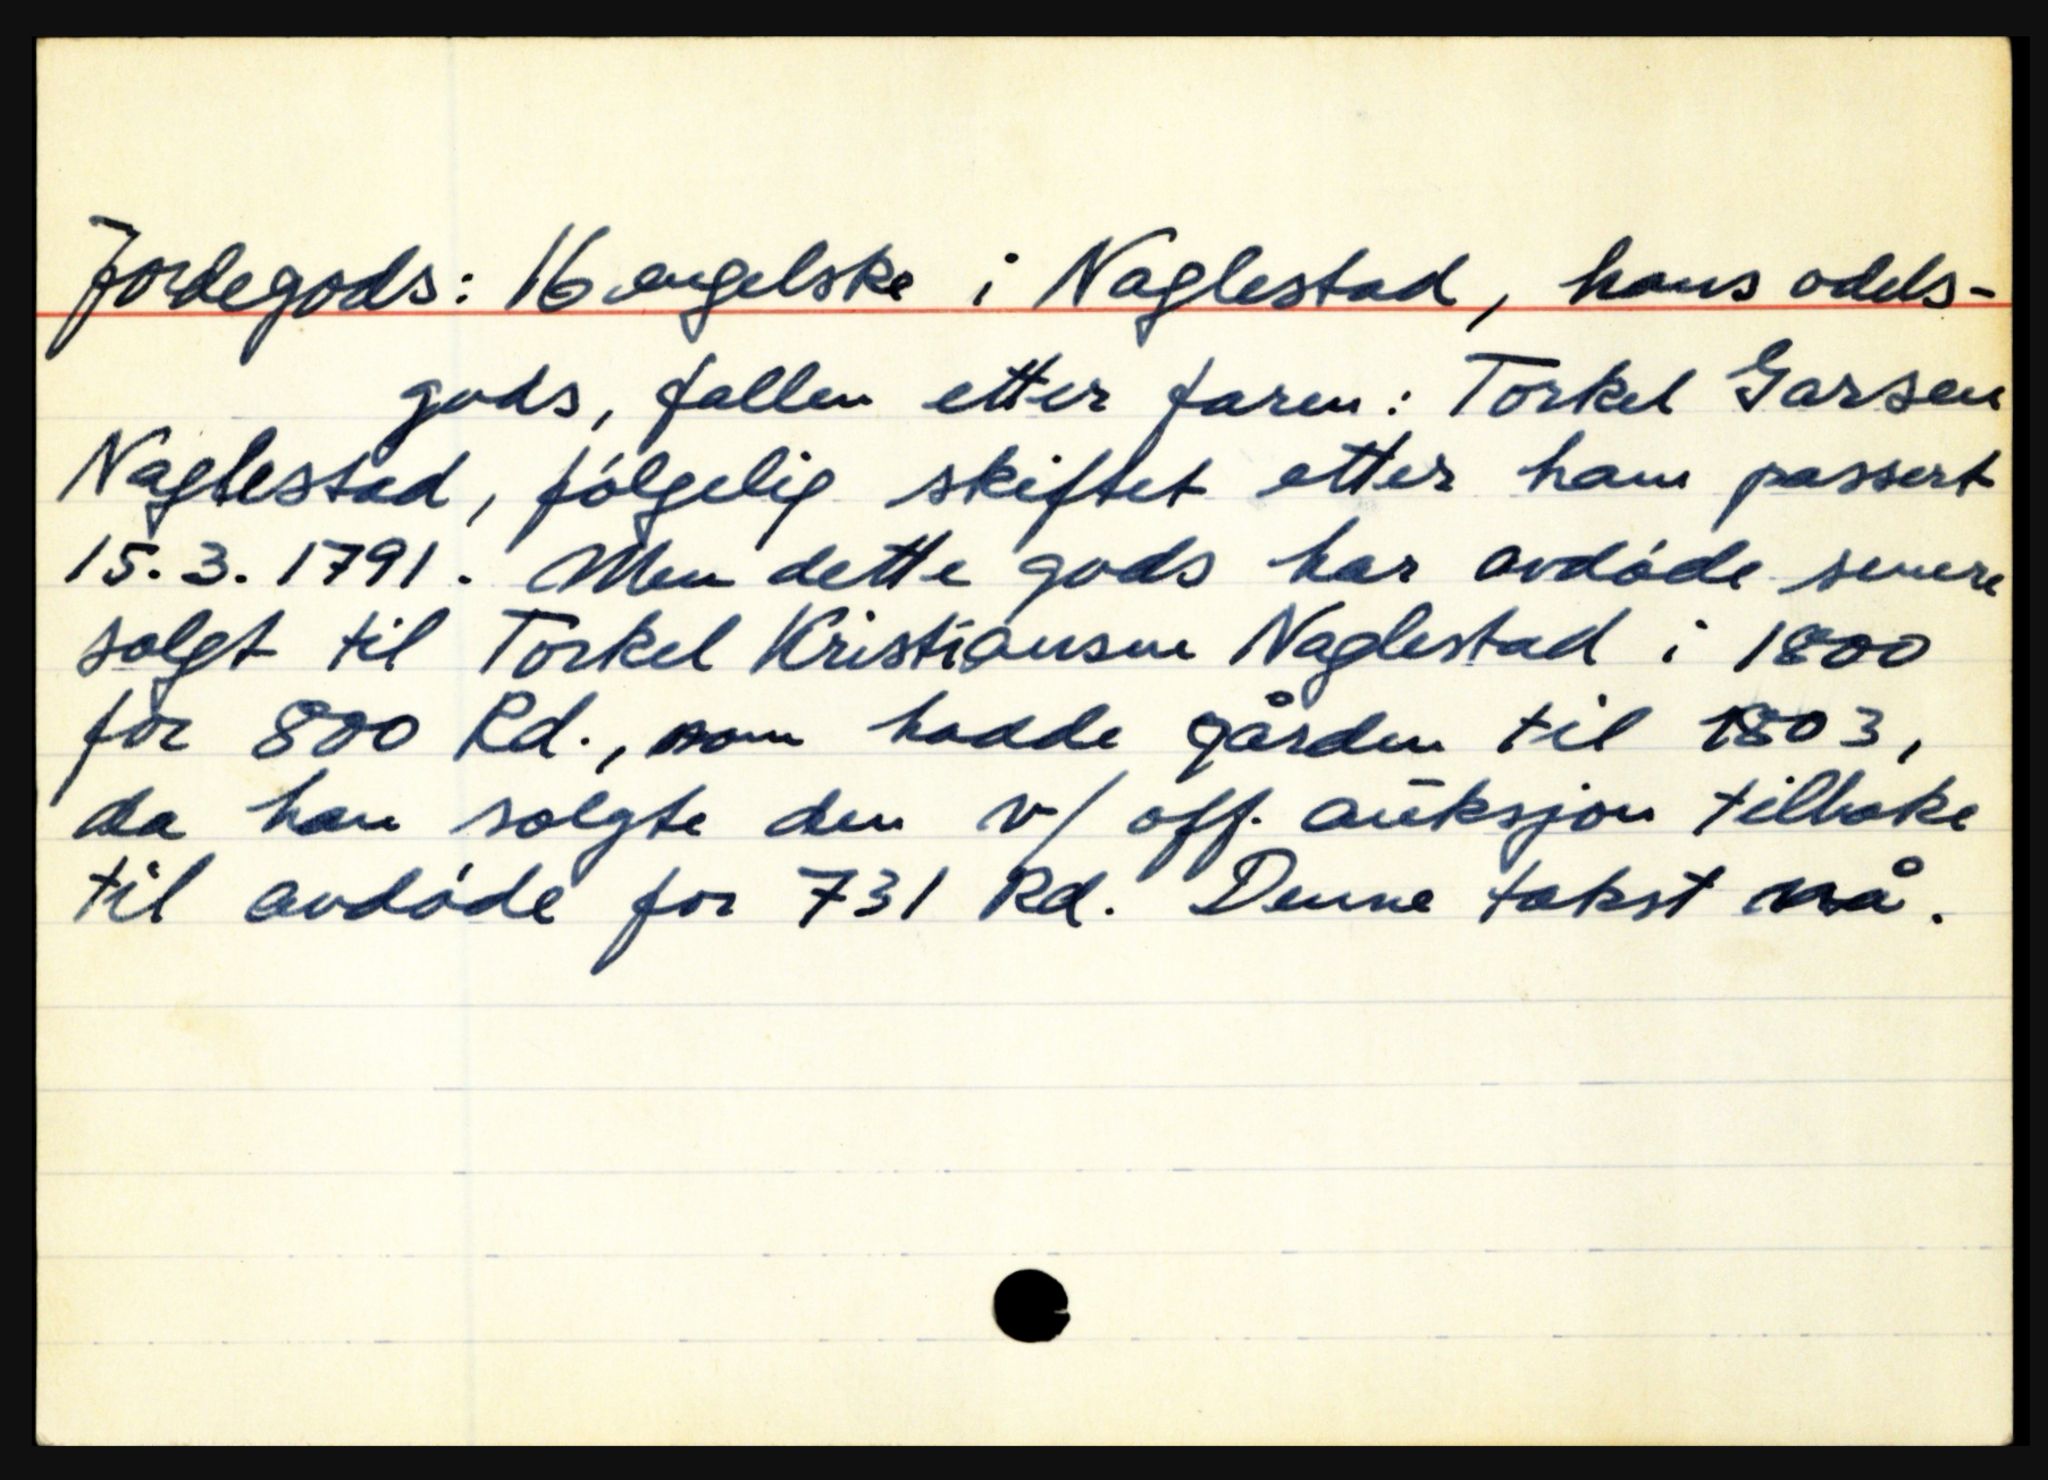 Jordegods: 16 engelske i Naglestad, hans odels-
gods, fallen etter faren: Torkel Garsen
Naglestad, følgelig skiftet etter ham passert
15.3.1791. Men dette gods har avdøde senere
solgt til Torkel Kristiansen Naglestad i 1800
for 800 Rd., som hadde gården til 1803,
da han solgte den v/ off. auksjon tilbake
til avdøde for 731 Rd. Denne takst nå.